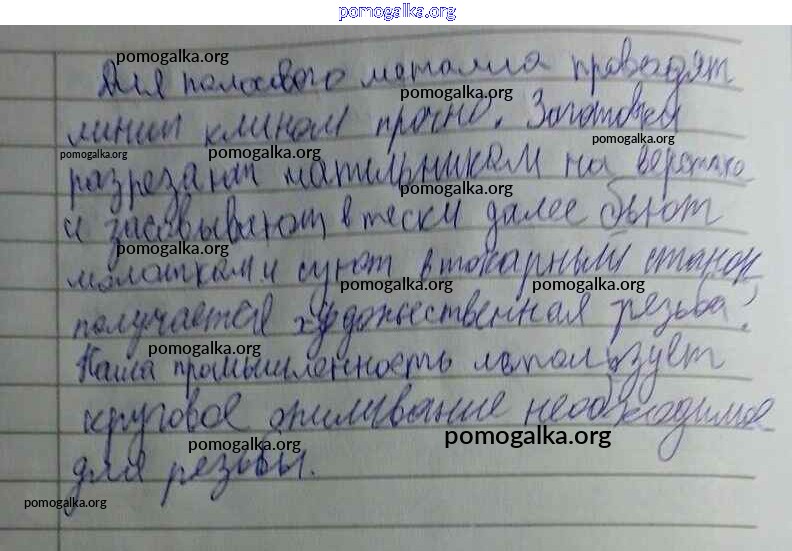 pomogalka.org
pomogalka.org
Для полосового металла проводят
pomogalka.org
линии клином прочно. Заготовка
pomogalka.org pomogalka.org pomogalka.org
разрезанап напильником на верстаке
pomogalka.org
и засовывают в тески далее бьют
pomogalka.org
молотком и суют в токарный станок
pomogalka.org pomogalka.org
получается художественная резьба!
pomogalka.org
Наша промышленность использует
круговое опиливание необходимое
pomogalka.org pomogalka.org
для резьбы.
pomogalka.org